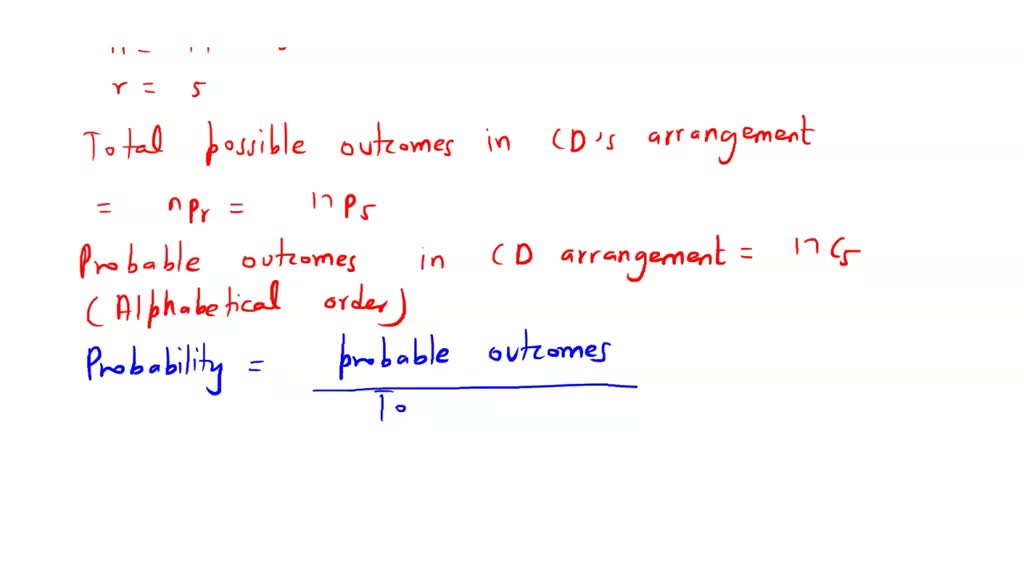 r = 5
Total possible outcomes in CD's arrangement
= nPr = 17P5
Probable outcomes in CD arrangement = 17C5
(Alphabetical order)
Probability = probable outcomes
To